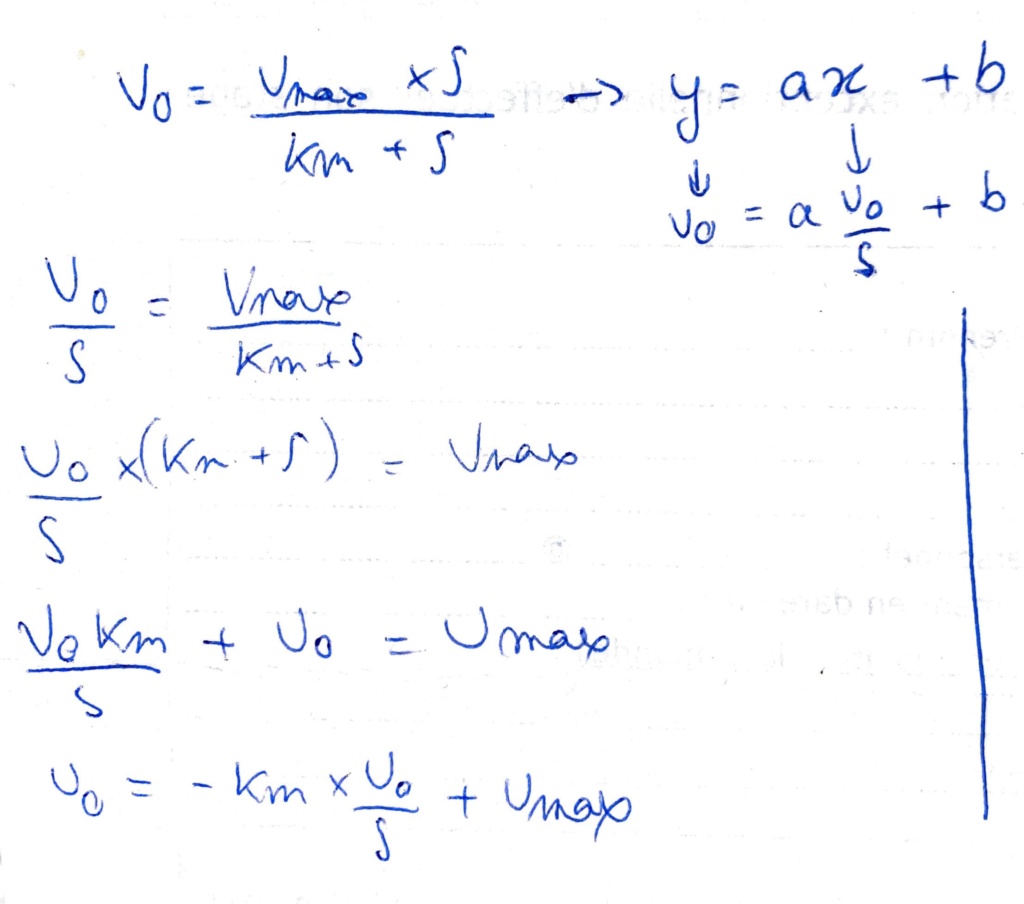 V₀ = (Vmax × S) / (Km + S) → y = ax + b
↓ ↓
V₀ = a V₀/S + b
V₀/S = Vmax / (Km + S)
V₀/S × (Km + S) = Vmax
V₀ Km / S + V₀ = Vmax
V₀ = - Km × V₀/S + Vmax